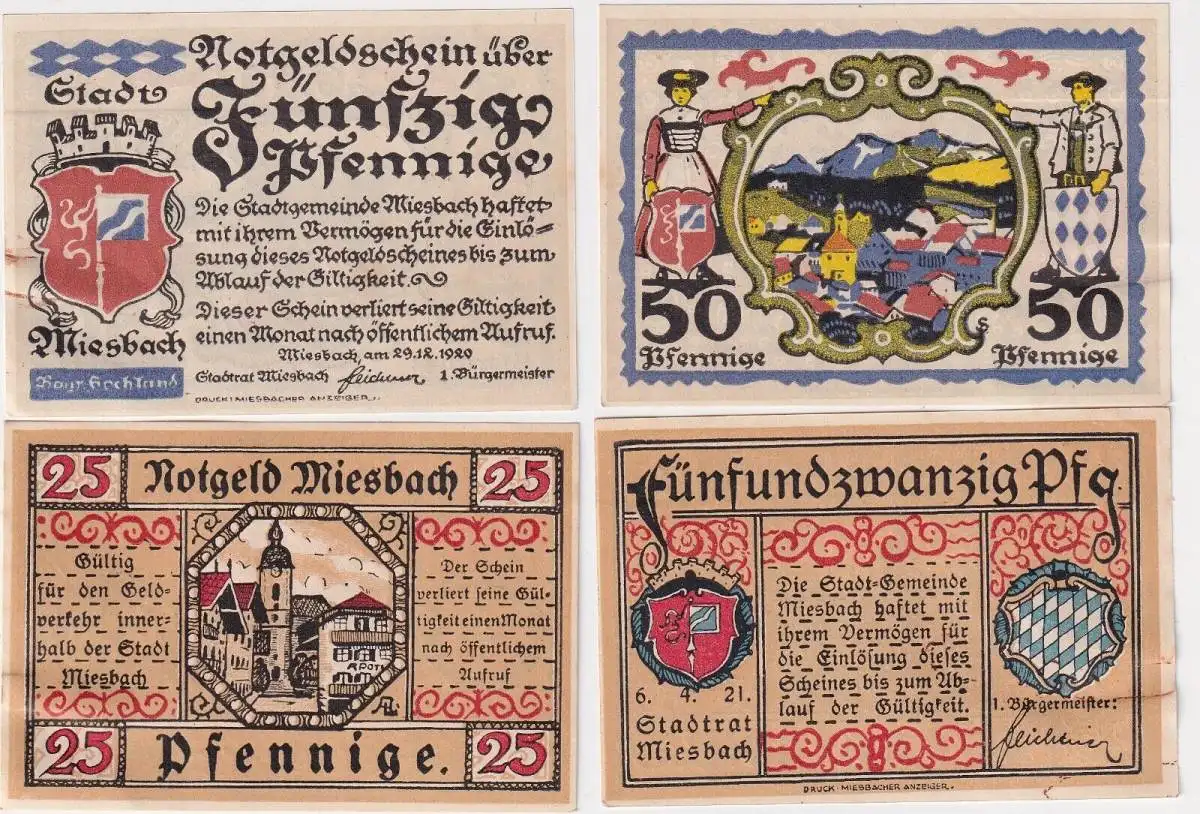 Stadt
Miesbach
Bayr. Hochland
Notgeldschein über
Fünfzig
Pfennige
Die Stadtgemeinde Miesbach haftet
mit ihrem Vermögen für die Einlö=
sung dieses Notgeldscheines bis zum
Ablauf der Giltigkeit.
Dieser Schein verliert seine Giltigkeit
einen Monat nach öffentlichem Aufruf.
Miesbach, am 29.12.1920
Stadtrat Miesbach 1. Bürgermeister
DRUCK: MIESBACHER ANZEIGER.
50 50
Pfennige Pfennige
25 Notgeld Miesbach 25
Gültig
für den Geld-
verkehr inner-
halb der Stadt
Miesbach
APOT
Der Schein
verliert seine Gül-
tigkeit einen Monat
nach öffentlichem
Aufruf
25 Pfennige. 25
Fünfundzwanzig Pfg.
6. 4. 21.
Stadtrat
Miesbach
Die Stadt-Gemeinde
Miesbach haftet mit
ihrem Vermögen für
die Einlösung dieses
Scheines bis zum Ab-
lauf der Gültigkeit.
1. Bürgermeister:
DRUCK · MIESBACHER ANZEIGER.